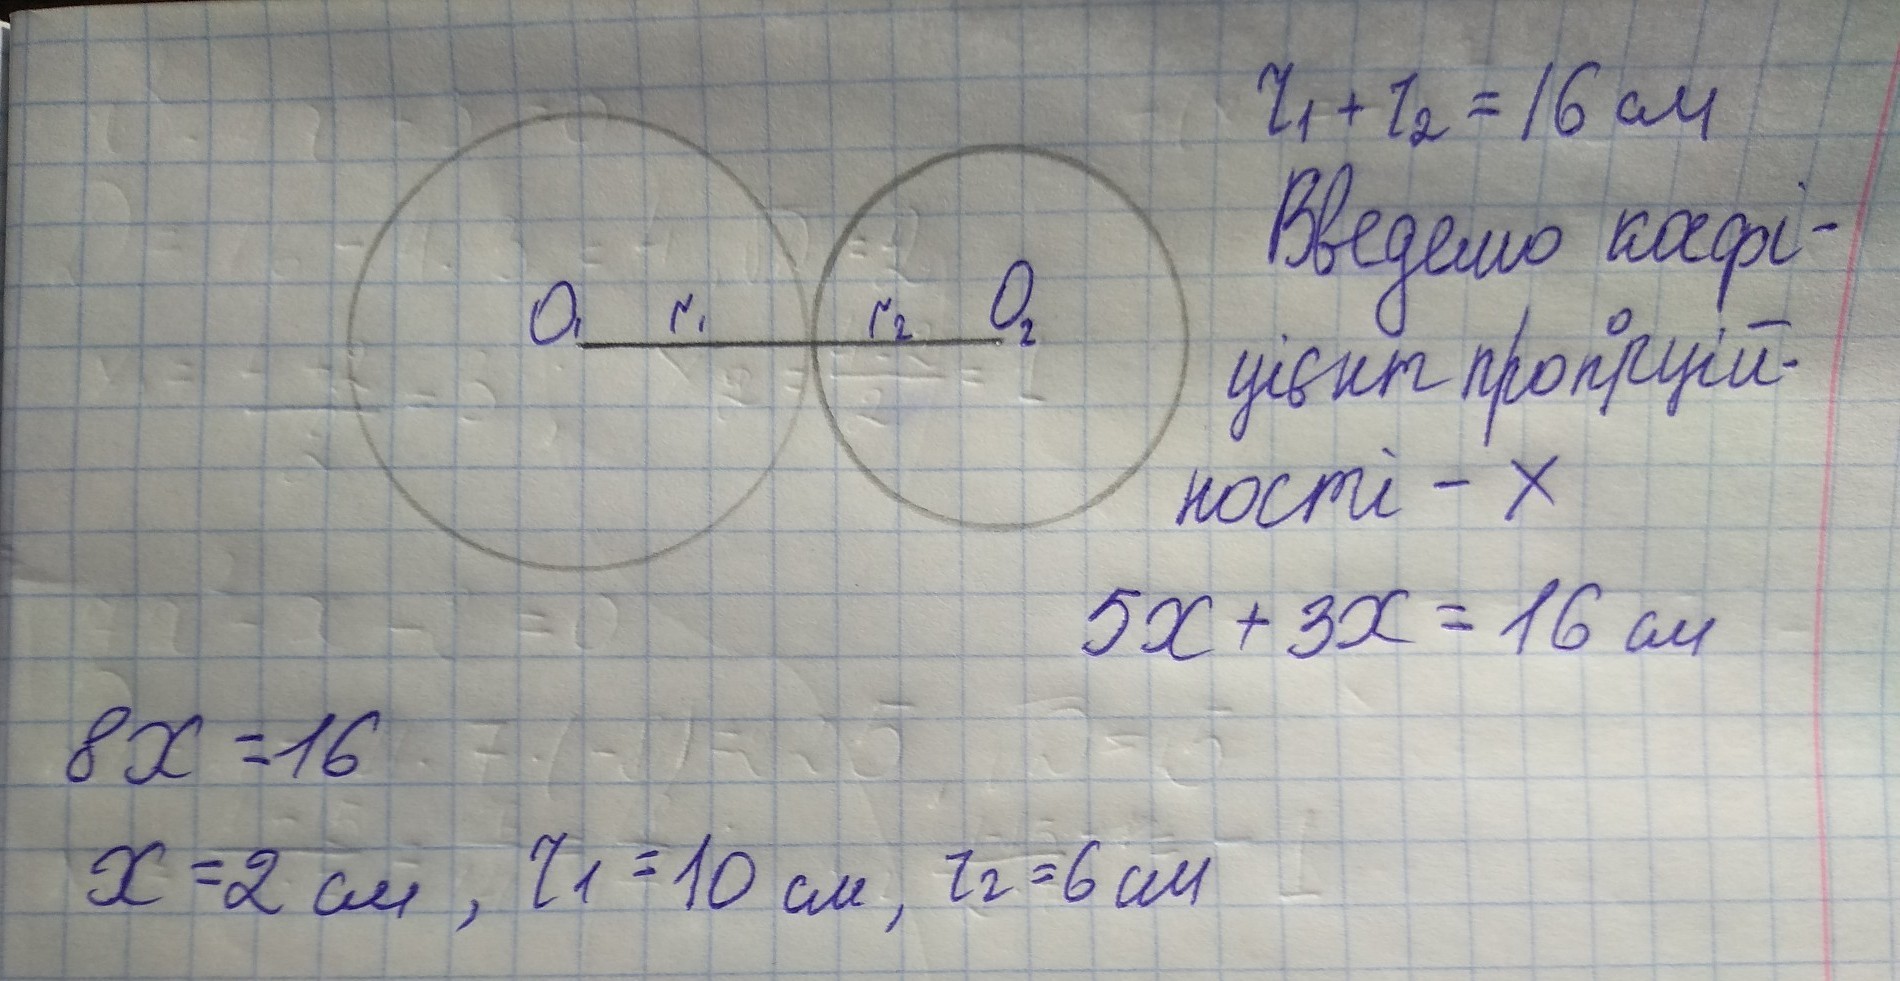 r₁ + r₂ = 16 см
O₁ r₁ r₂ O₂
Введемо коефі-
цієнт пропорцій-
ності - х
5х + 3х = 16 см
8х = 16
х = 2 см, r₁ = 10 см, r₂ = 6 см